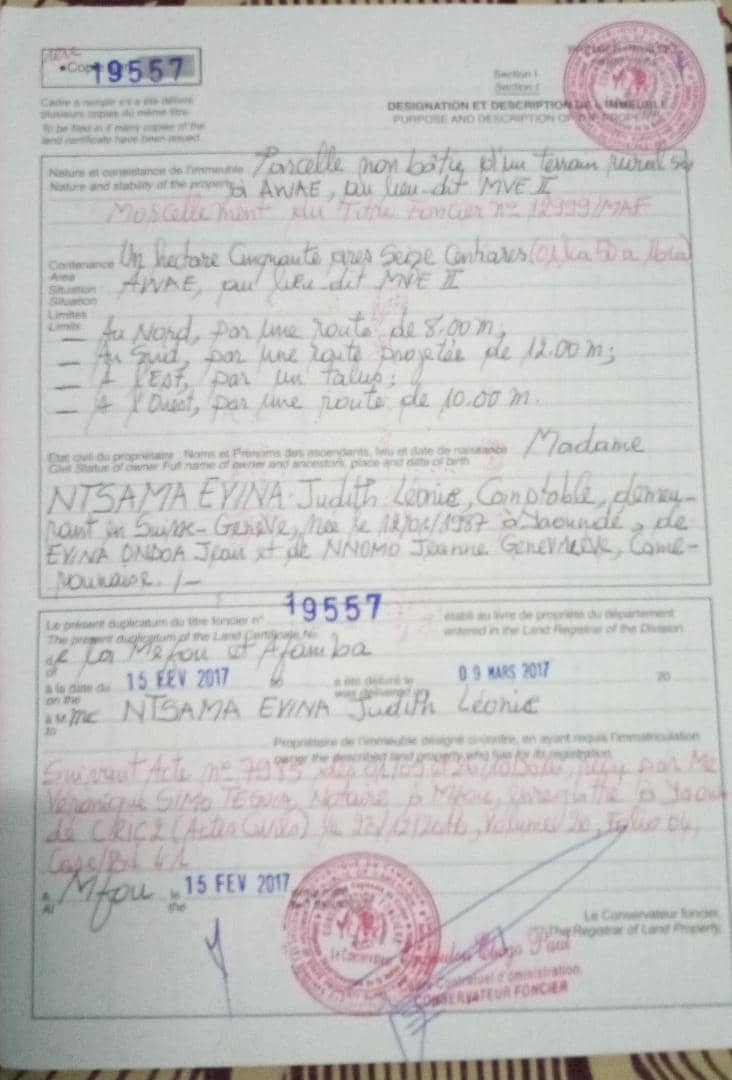 1ère
•Copie 19557
Cadre à remplir s'il a été délivré
plusieurs copies du même titre.
To be filed in if many copies of the
land certificate have been issued.
Section I
Section I
DESIGNATION ET DESCRIPTION DE L'IMMEUBLE
PURPOSE AND DESCRIPTION OF THE PROPERTY
Nature et consistance de l'immeuble Parcelle non bâtie d'un terrain rural sis
Nature and stability of the property à AWAE, au lieu-dit MVE II
Morcellement du Titre Foncier n° 12999/MAF
Contenance Un hectare Cinquante ares Seize Centiares (01ha 50a 16ca)
Area
Situation AWAE, au lieu-dit MVE II
Situation
Limites
Limits
— Au Nord, par une route de 8.00 m;
— Au Sud, par une route projetée de 12.00 m;
— A l'Est, par un talus;
— A l'Ouest, par une route de 10.00 m.
Etat civil du propriétaire : Noms et Prénoms des ascendants, lieu et date de naissance Madame
Civil Status of owner Full name of owner and ancestors, place and date of birth
NTSAMA EVINA Judith Léonie, Comptable, demeu-
rant en Suisse-Genève, née le 1987 à Yaoundé, de
EVINA ONDOA Jean et de NNOMO Jeanne Geneviève, Came-
rounaise. /-
Le présent duplicatum du titre foncier n° 19557 établi au livre de propriété du département
The present duplicatum of the Land Certificate No entered in the Land Register of the Division
de La Mefou et Afamba
of
à la date du 15 FEV 2017 20 a été délivré le 09 MARS 2017 20
on the was delivered
à M me NTSAMA EVINA Judith Léonie
to
Propriétaire de l'immeuble désigné ci-contre, en ayant requis l'immatriculation
owner the described land property who has for its registration
Suivant Acte n° 7985 des reçu par Me
Véronique SIMO Notaire à Mfou, enregistré à Yaoun-
dé CRIC2 (Actes Civils) le Volume 20, Folio 04,
Case/Bd
à Mfou le 15 FEV 2017
At the
Le Conservateur foncier,
The Registrar of Land Property,
Paul
Contractuel d'Administration
CONSERVATEUR FONCIER